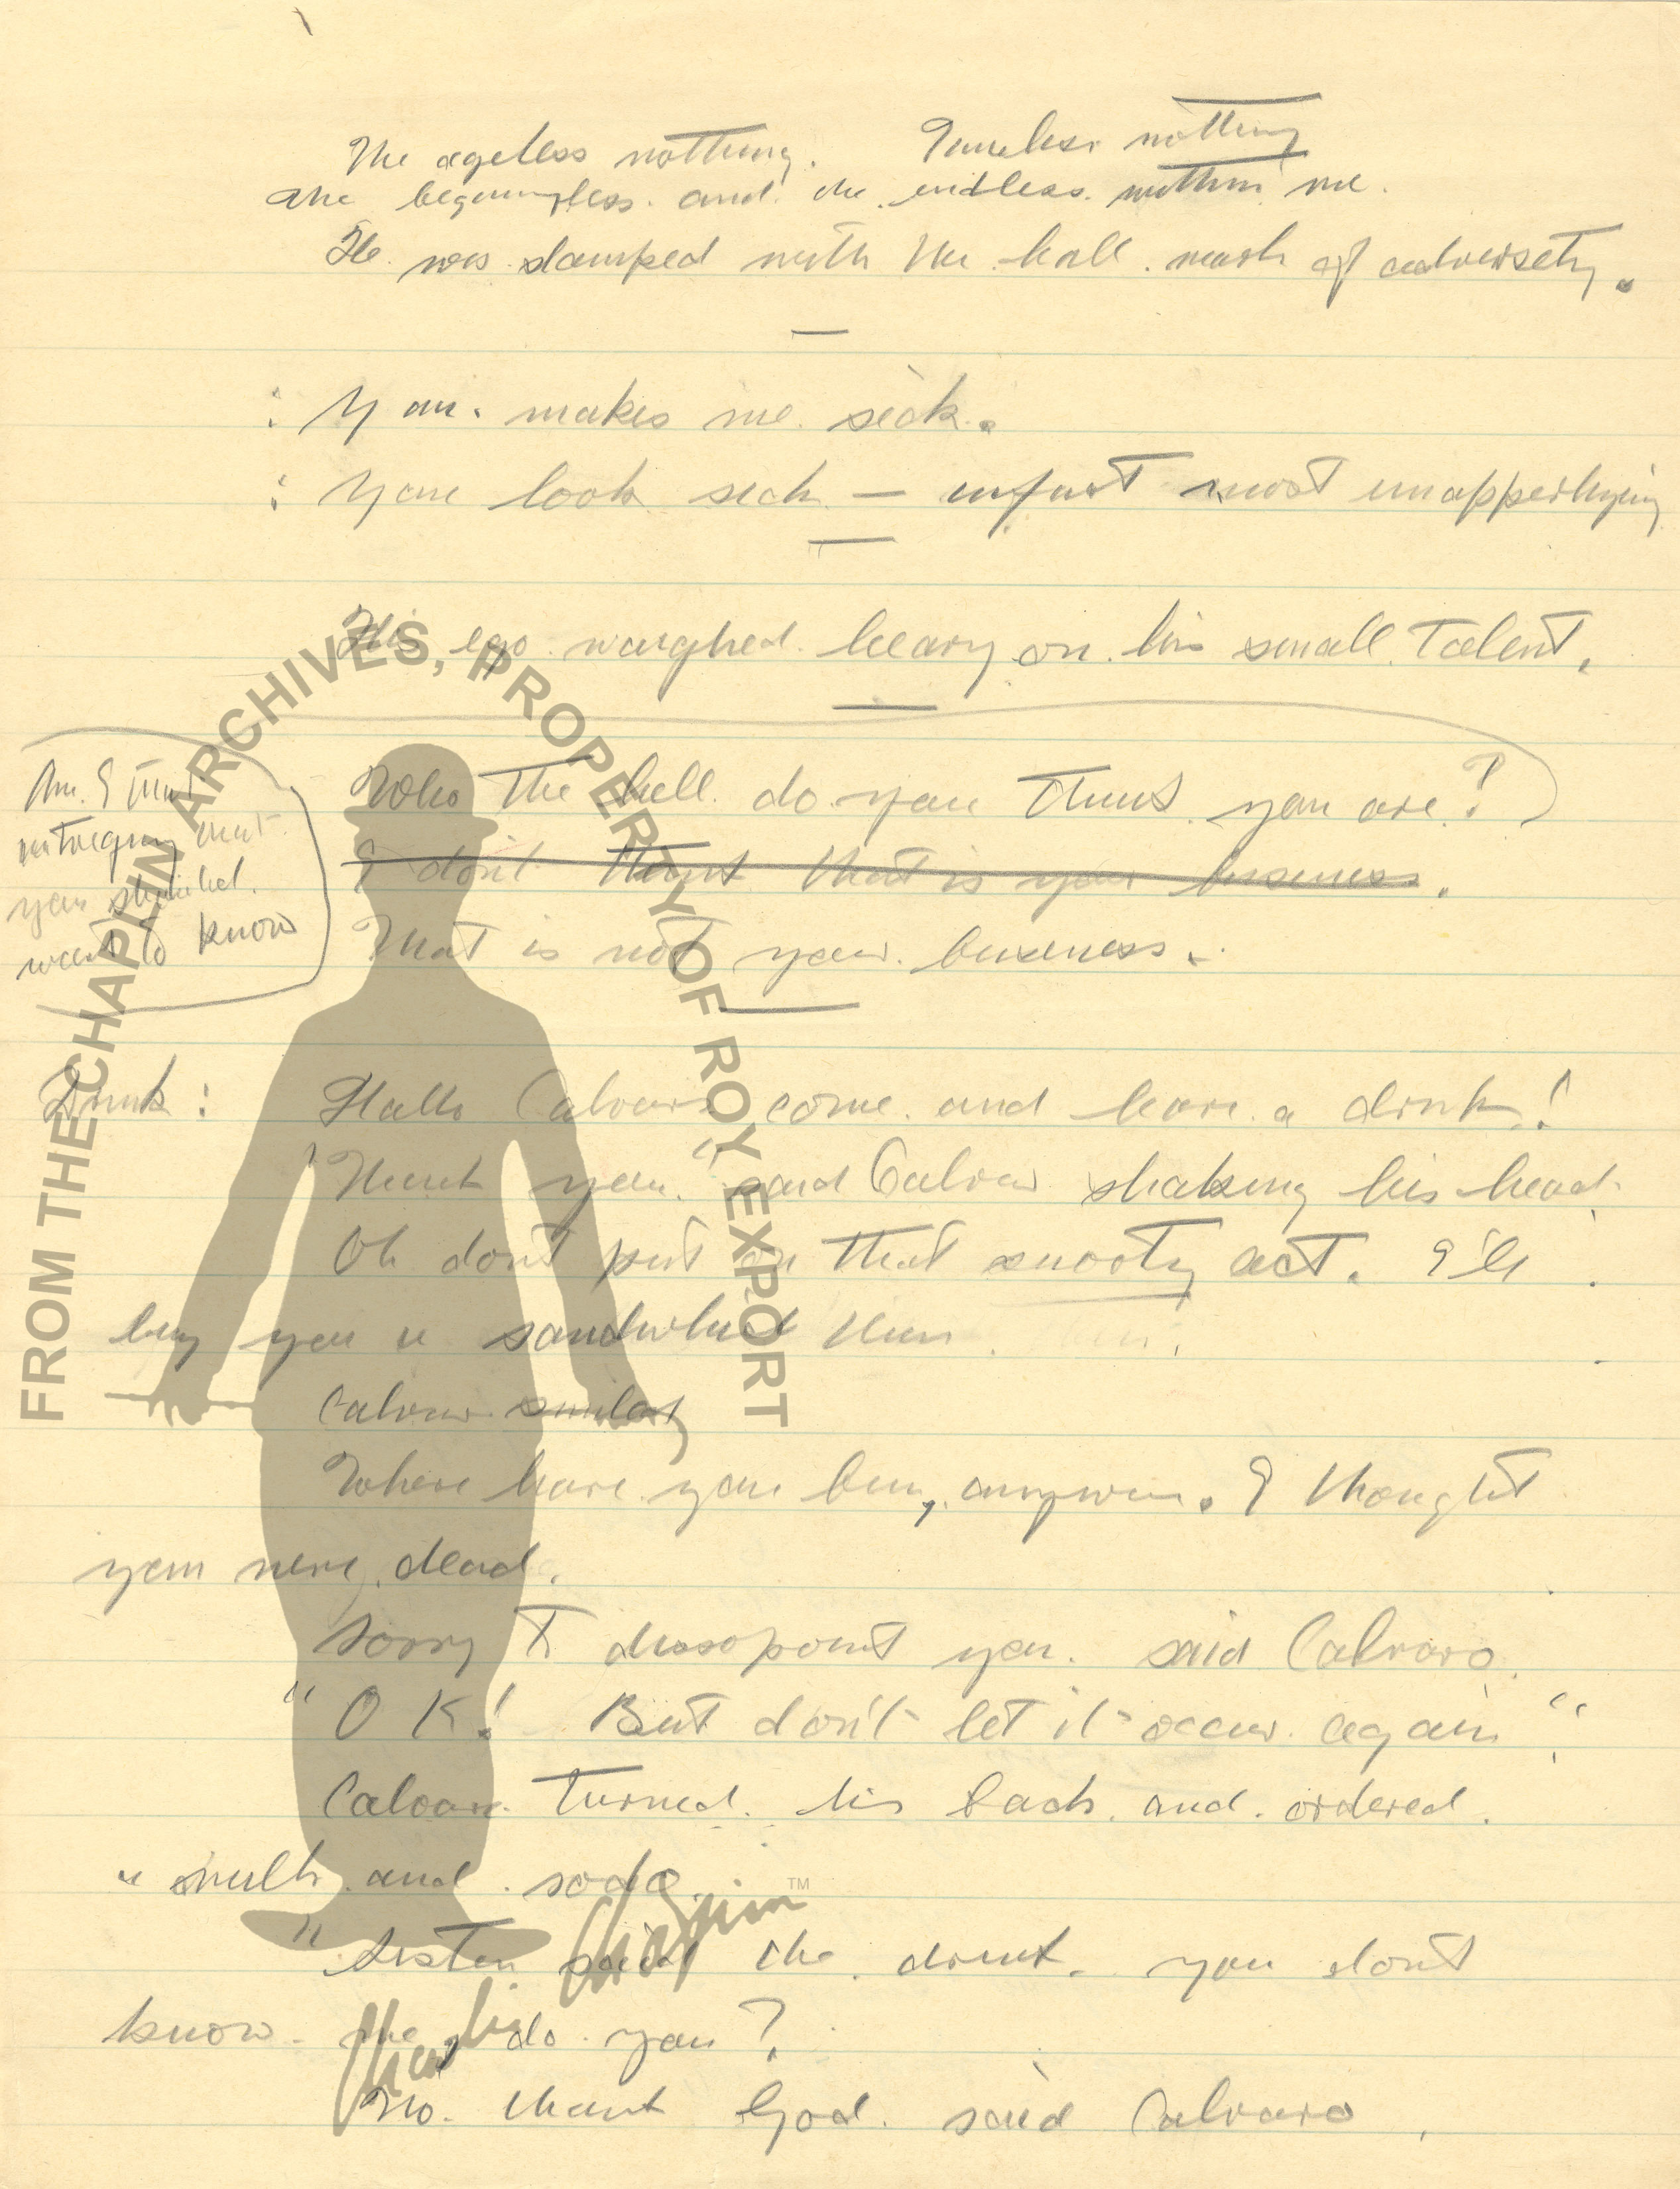 The ageless nothing. Timeless nothing
The beginingless and the endless within me.
He was stamped with the hall mark of adversety.
: You makes me sick.
: You look sick — infact most unapperlizing
His ego weighed heavy on his small talent.
Who the hell do you think you are?
I don't think that is your buseness.
That is not your buseness.
Am I that
intreguing that
you should
want to know
Drunk: Hallo Calvaro come and have a drink!
"Thank you." said Calvaro shaking his head.
Oh don't put on that snooty act. I'll
buy you a sandwhich then
Calvaro
Where have you been, anyway. I thought
you were dead.
Sorry to dissopoint you. said Calvaro.
"O K! But don't let it occur again"
Calvaro turned his back and ordered
a milk and soda.
"Listen said the drunk. you don't
know me, do you?
No. thank God. said Calvaro.
FROM THE CHAPLIN ARCHIVES, PROPERTY OF ROY EXPORT
Charlie Chaplin™